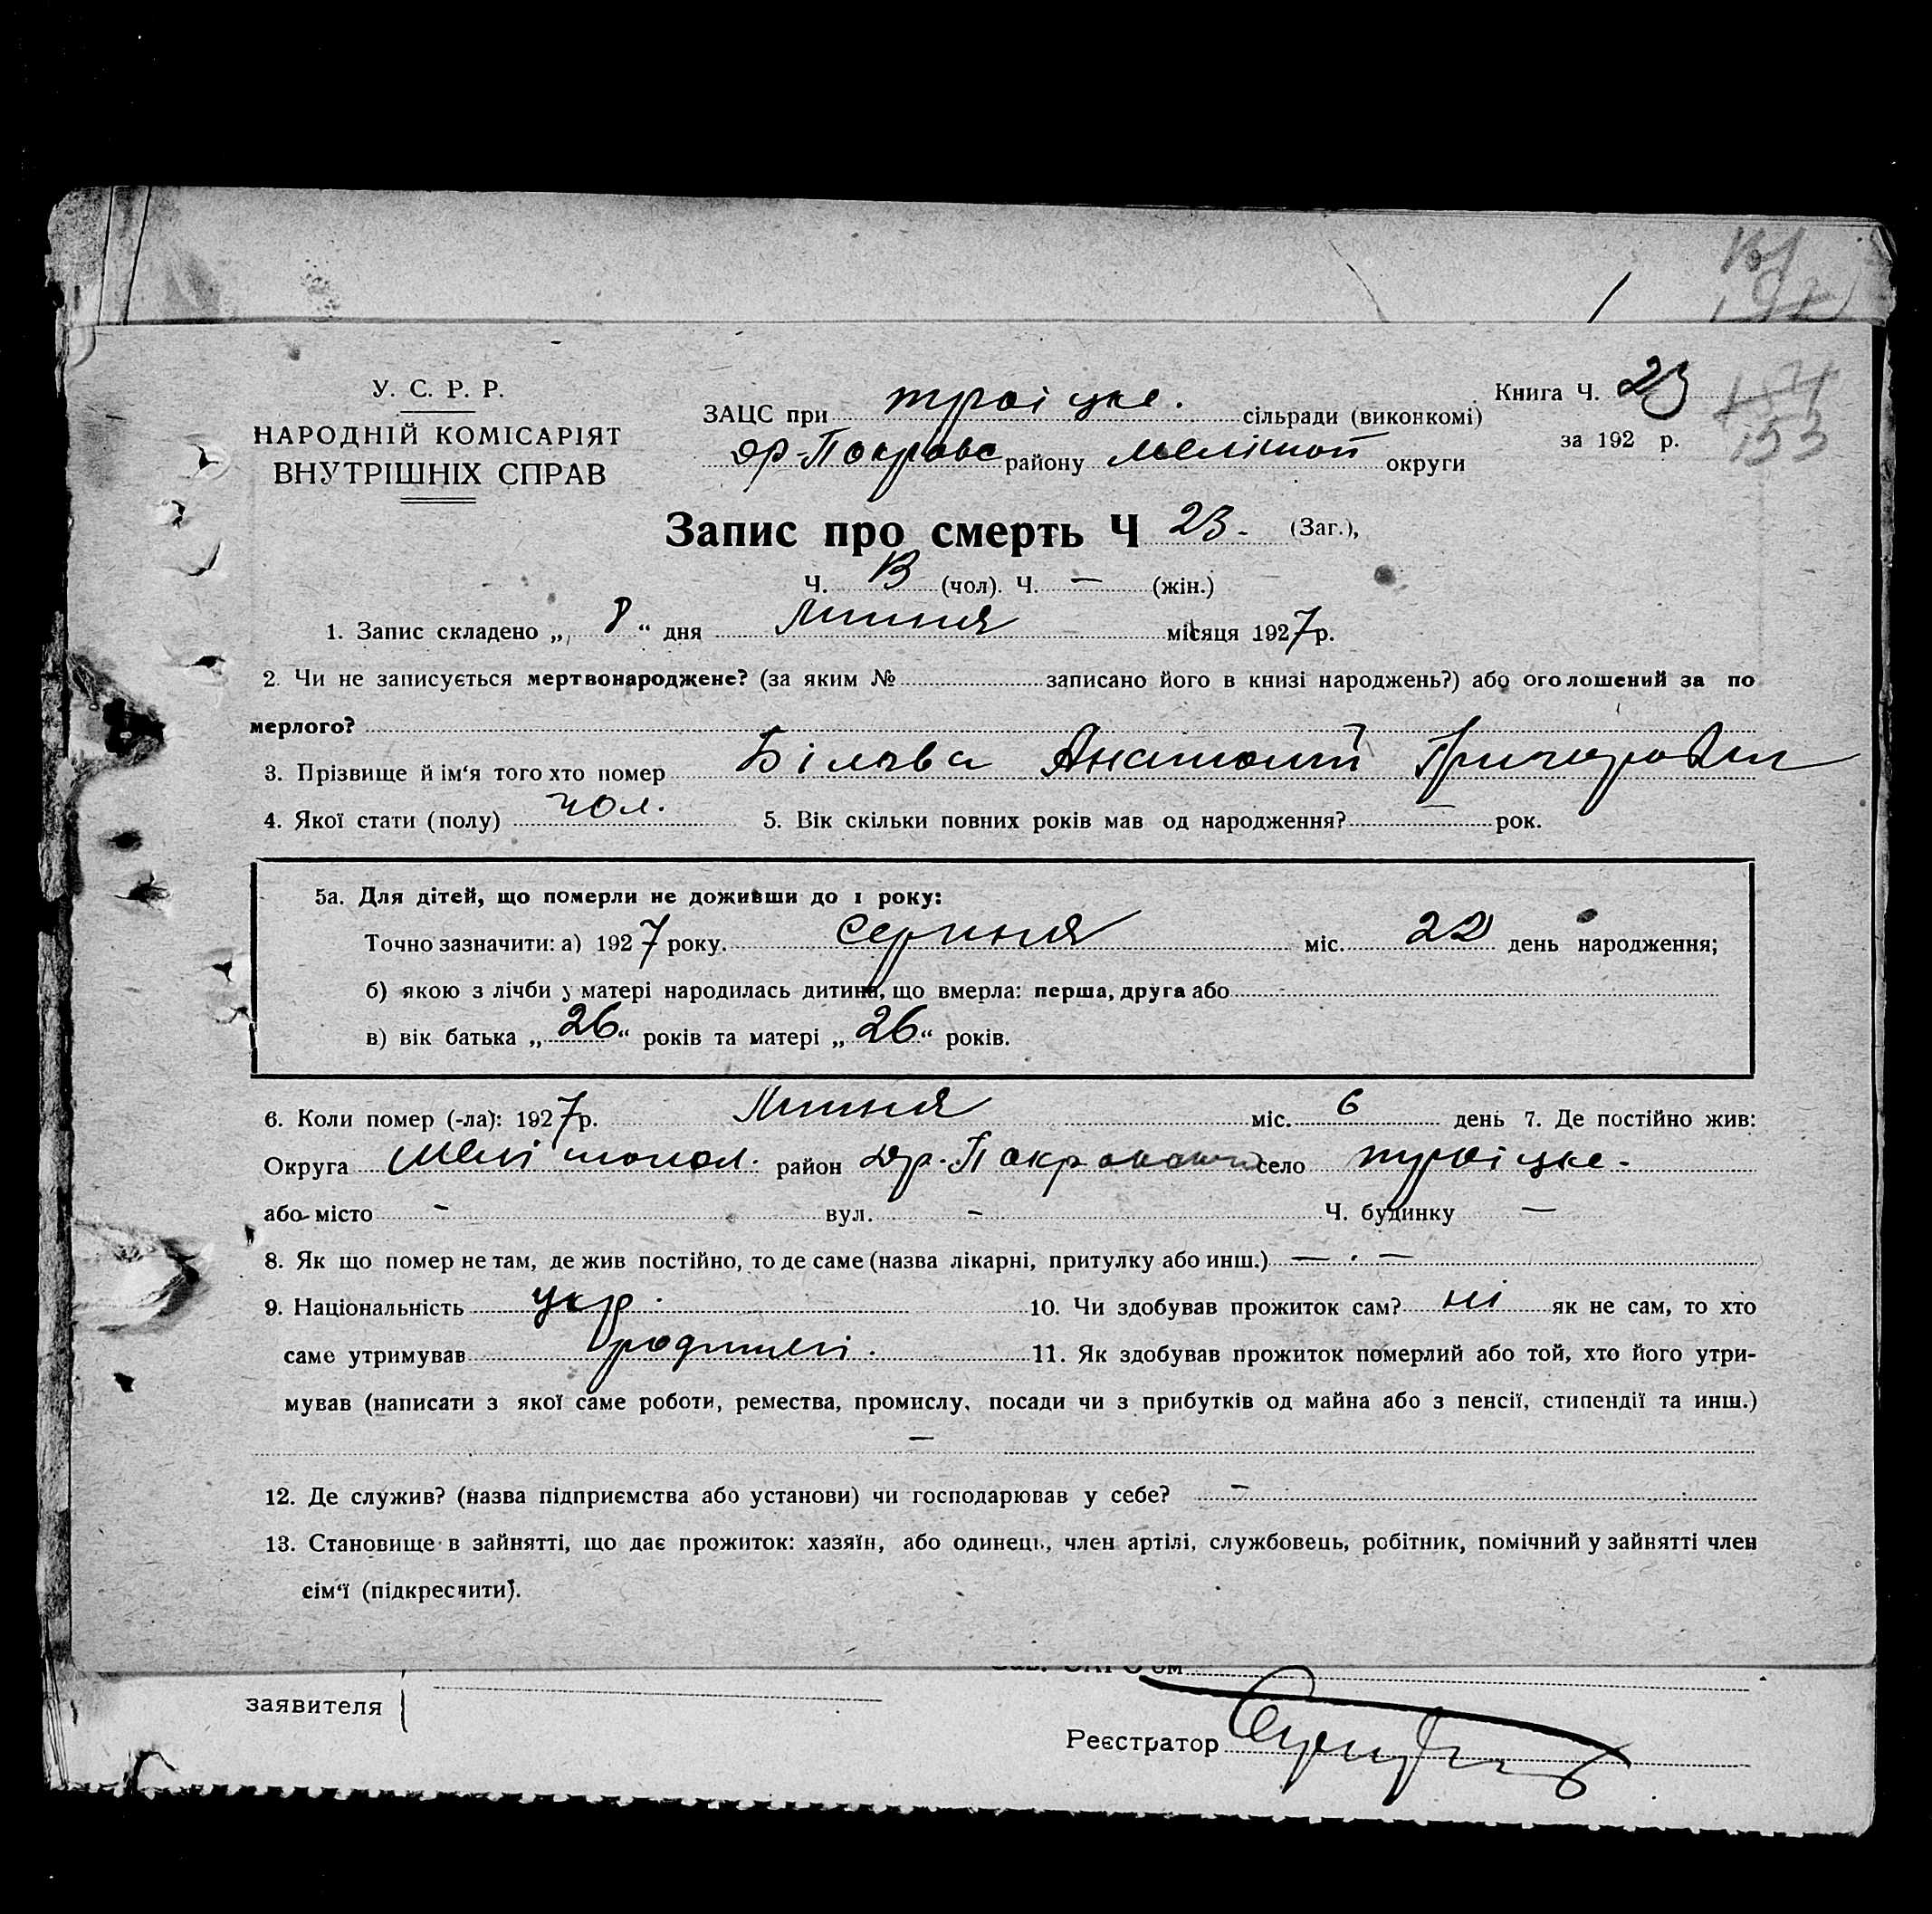 У. С. Р. Р.
НАРОДНІЙ КОМІСАРІЯТ
ВНУТРІШНІХ СПРАВ
ЗАЦС при троіцке. сільради (виконкомі)
др-Покровс району Меліттоп округи
Книга Ч. 23
за 192 р.
153
Запис про смерть Ч 23. (Заг.),
Ч. 13 (чол). Ч. — (жін.)
1. Запис складено „ 8 “ дня Липня місяця 1927 р.
2. Чи не записується мертвонароджене? (за яким № записано його в книзі народжень?) або оголошений за по
мерлого?
3. Прізвище й ім‘я того хто помер Анатолій
4. Якої стати (полу) чол. 5. Вік скільки повних років мав од народження? — рок.
5а. Для дітей, що померли не доживши до 1 року:
Точно зазначити: а) 1927 року. серпня міс. 22 день народження;
б) якою з лічби у матері народилась дитина, що вмерла: перша, друга або
в) вік батька „ 26 “ років та матері „ 26 “ років.
6. Коли помер (-ла): 1927 р. Липня міс. 6 день 7. Де постійно жив:
Округа Мелітопол. район др.-Покровський село троіцке.
або місто - вул. - Ч. будинку —
8. Як що помер не там, де жив постійно, то де саме (назва лікарні, притулку або инш.) — . —
9. Національність укр. 10. Чи здобував прожиток сам? ні як не сам, то хто
саме утримував родителі. 11. Як здобував прожиток померлий або той, хто його утри-
мував (написати з якої саме роботи, ремества, промислу, посади чи з прибутків од майна або з пенсії, стипендії та инш.)
—
12. Де служив? (назва підприємства або установи) чи господарював у себе? -
13. Становище в зайнятті, що дає прожиток: хазяїн, або одинець, член артілі, службовець, робітник, помічний у зайнятті член
сім‘ї (підкреслити).
заявителя
Реєстратор